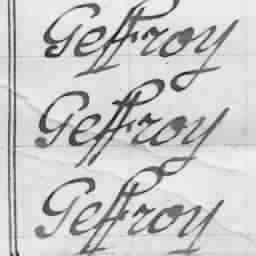 Geffroy
Geffroy
Geffroy